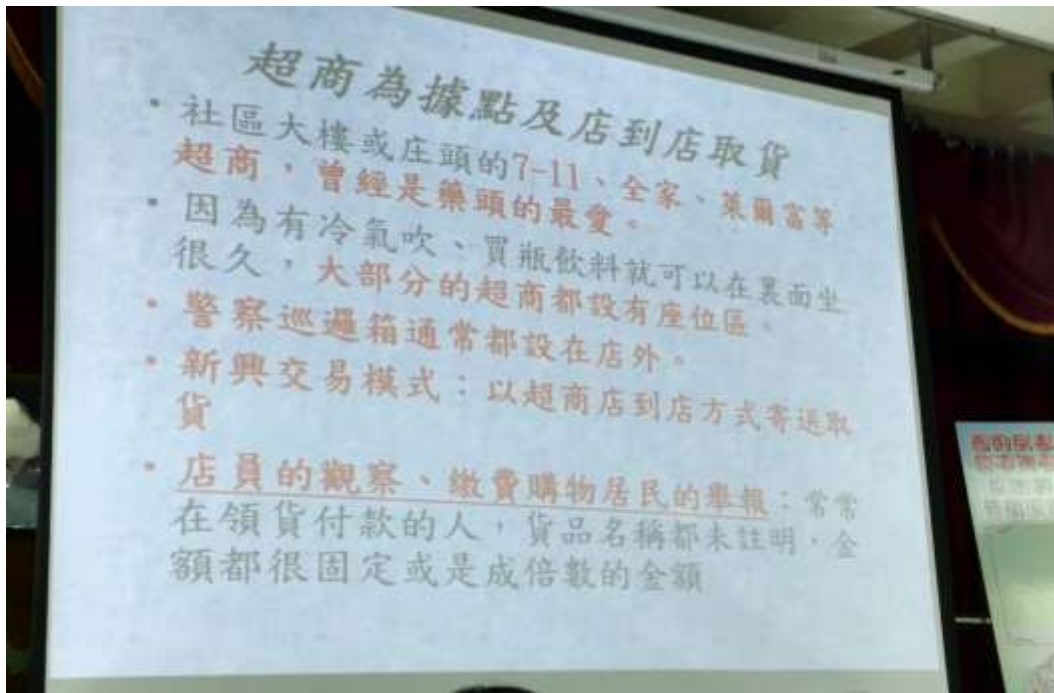 超商為據點及店到店取貨
• 社區大樓或庄頭的7-11、全家、萊爾富等
超商，曾經是藥頭的最愛。
• 因為有冷氣吹、買瓶飲料就可以在裏面坐
很久，大部分的超商都設有座位區。
• 警察巡邏箱通常都設在店外。
• 新興交易模式：以超商店到店方式寄送取
貨
• 店員的觀察、繳費購物居民的舉報：常常
在領貨付款的人，貨品名稱都未註明，金
額都很固定或是成倍數的金額